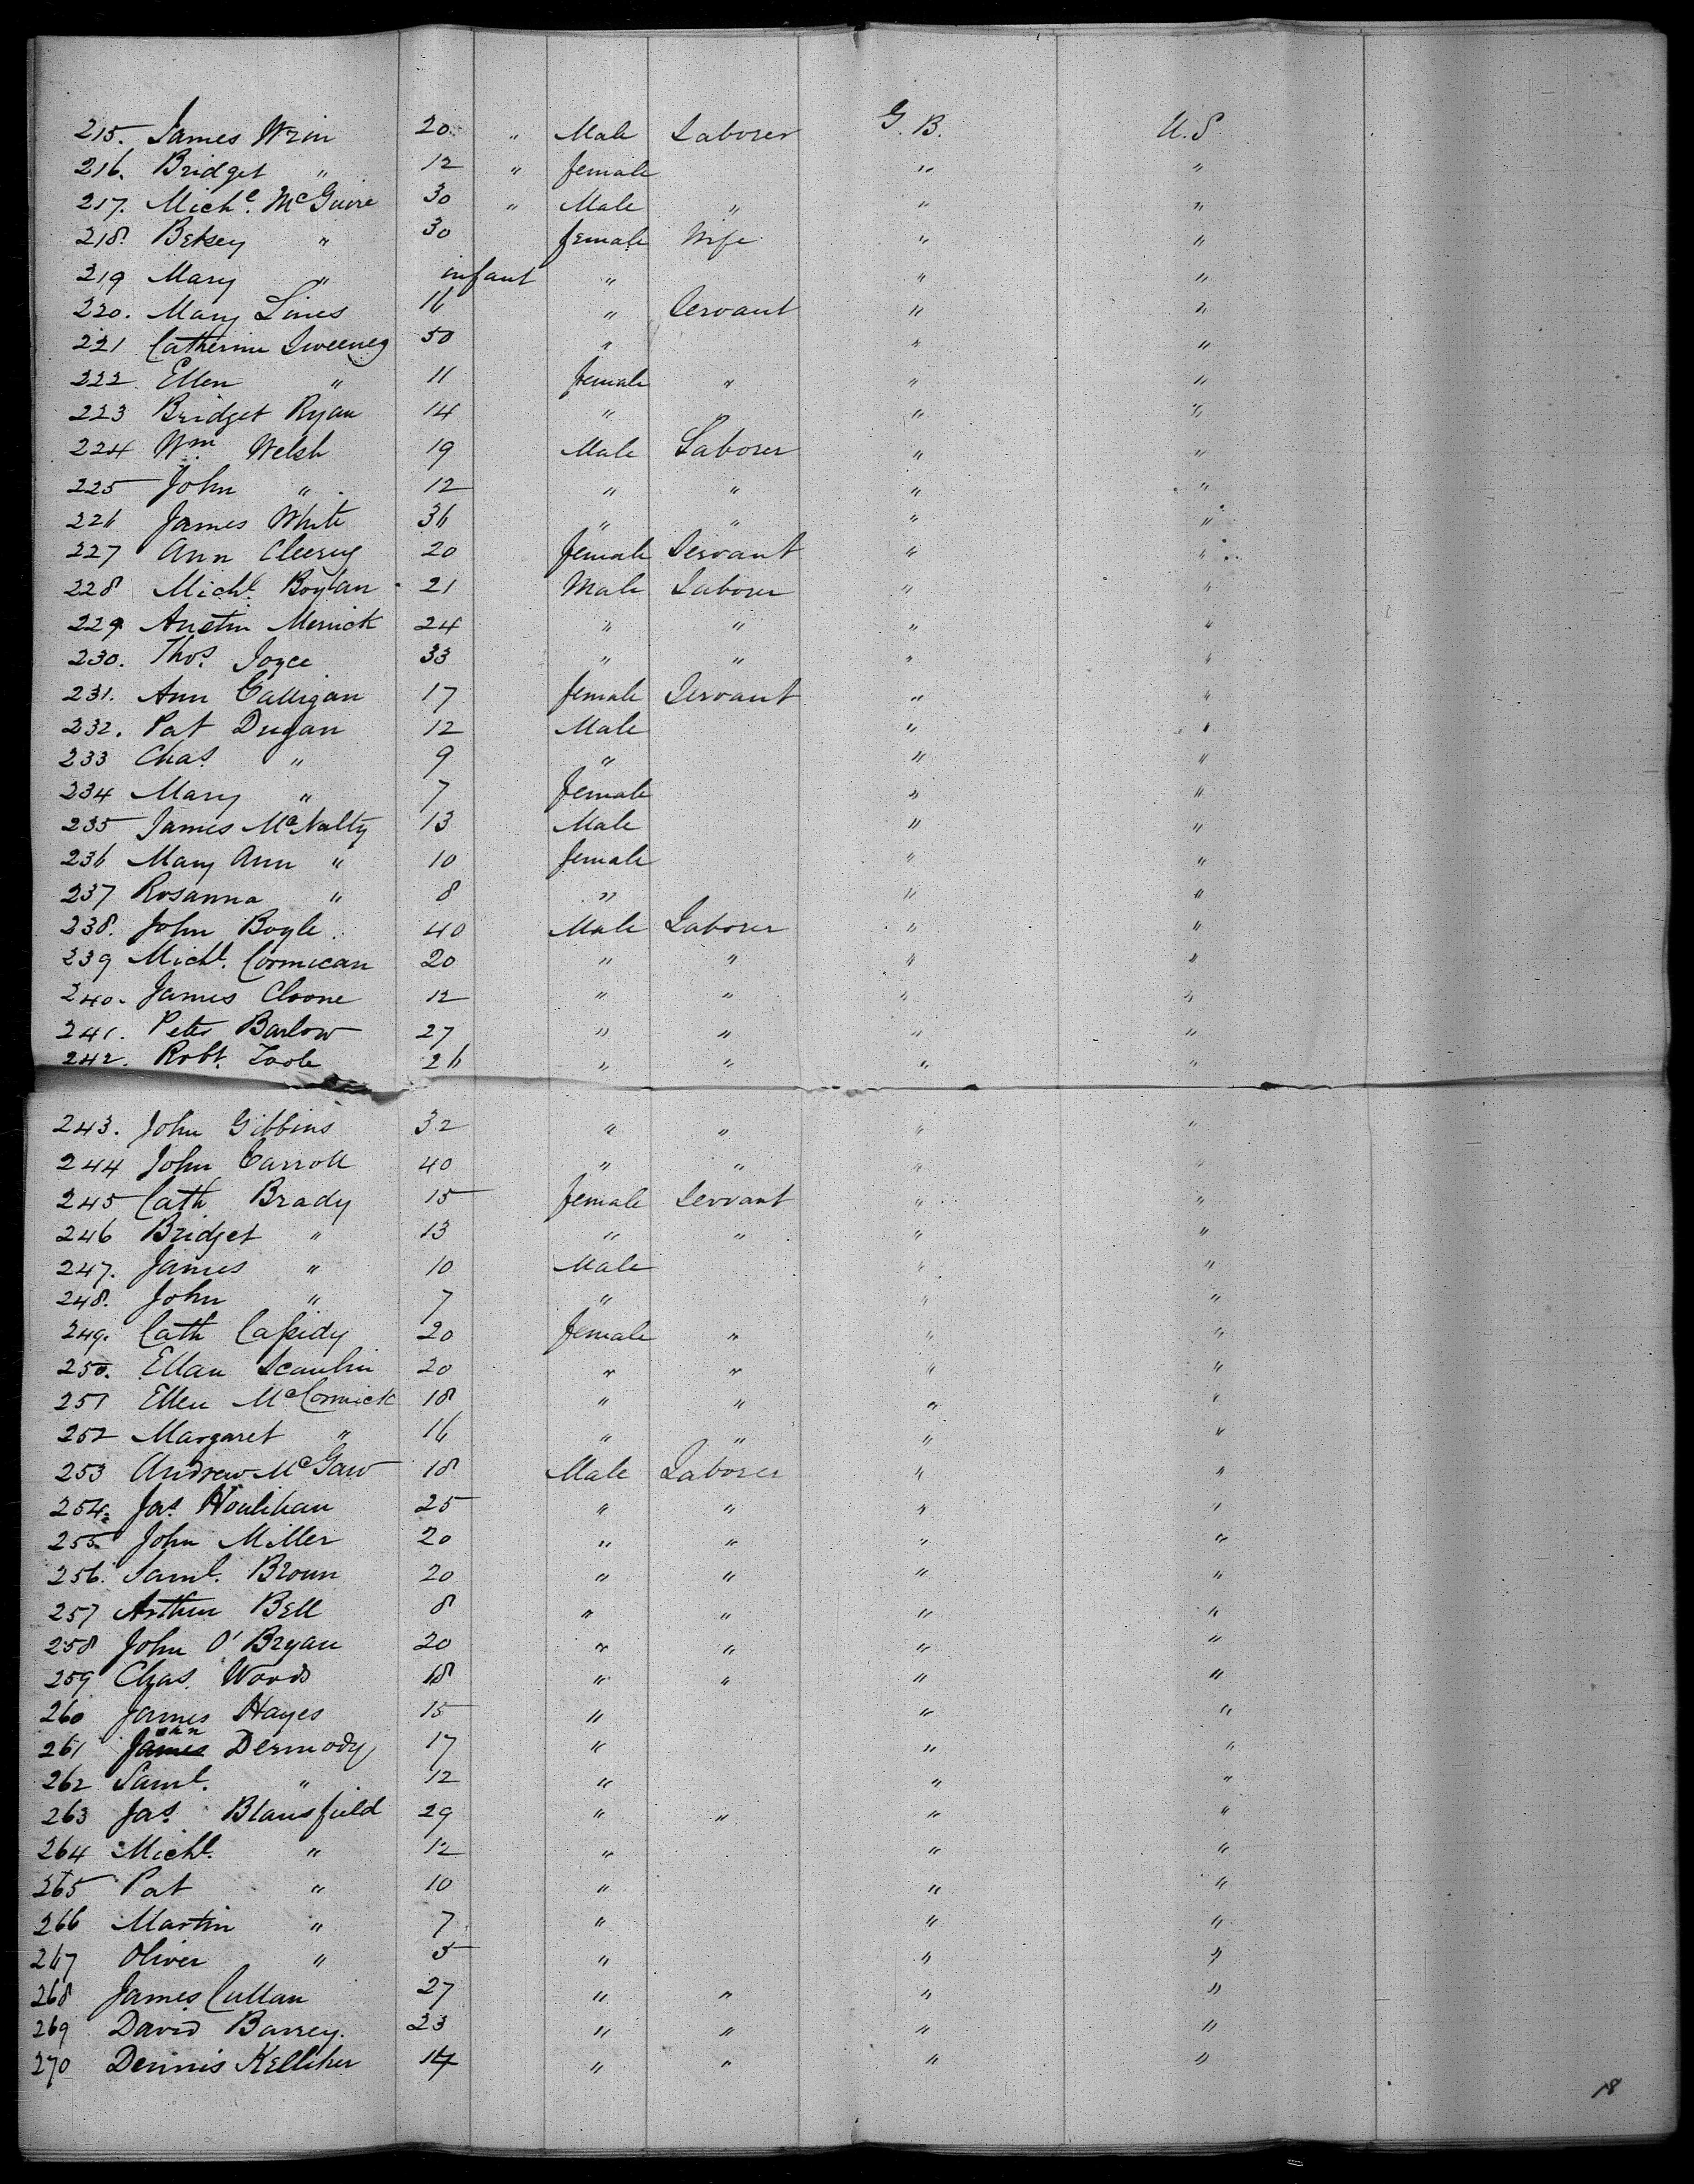 215. James Wrin 20 " Male Laborer G. B. U. S.
216. Bridget " 12 " female " "
217. Michl. McGuire 30 " Male " " "
218. Betsey " 30 female Wife " "
219 Mary " infant " " "
220. Mary Lines 16 " Servant " "
221 Catherine Sweeney 50 " " "
222 Ellen " 11 female " " "
223 Bridget Ryan 14 " " "
224 Wm. Welsh 19 Male Laborer " "
225 John " 12 " " " "
226 James White 36 " " " "
227 Ann 20 female Servant " "
228 Michl. Boylan 21 Male Laborer " "
229 Austin Merrick 24 " " " "
230. Thos. Joyce 33 " " " "
231. Ann Calligan 17 female Servant " "
232. Pat Dugan 12 Male " "
233 Chas. " 9 " " "
234 Mary " 7 female " "
235 James McNalty 13 Male " "
236 Mary Ann " 10 female " "
237 Rosanna " 8 " " "
238. John Boyle 40 Male Laborer " "
239 Michl. Cormican 20 " " " "
240. James Cloone 12 " " " "
241. Peter Barlow 27 " " " "
242. Robt. Toole 26 " " " "
243. John Gibbins 32 " " " "
244 John Carroll 40 " " " "
245 Cath Brady 15 female Servant " "
246 Bridget " 13 " " " "
247. James " 10 Male " "
248. John " 7 " " "
249. Cath Cassidy 20 female " " "
250. Ellan Scanlin 20 " " " "
251 Ellen McCormick 18 " " " "
252 Margaret " 16 " " " "
253 Andrew McGaw 18 Male Laborer " "
254. Jas. Houlihan 25 " " " "
255. John Miller 20 " " " "
256. Saml. Broun 20 " " " "
257 Arthur Bell 8 " " " "
258 John O'Bryan 20 " " " "
259 Chas. Woods 18 " " " "
260 James Hayes 15 " " "
261 John Dermody 17 " " "
262 Saml. " 12 " " "
263 Jas. Blansfield 29 " " " "
264 Michl. " 12 " " "
265 Pat " 10 " " "
266 Martin " 7 " " "
267 Oliver " 5 " " "
268 James Cullan 27 " " " "
269 David Barrey. 23 " " " "
270 Dennis Kelliher 14 " " " "
18